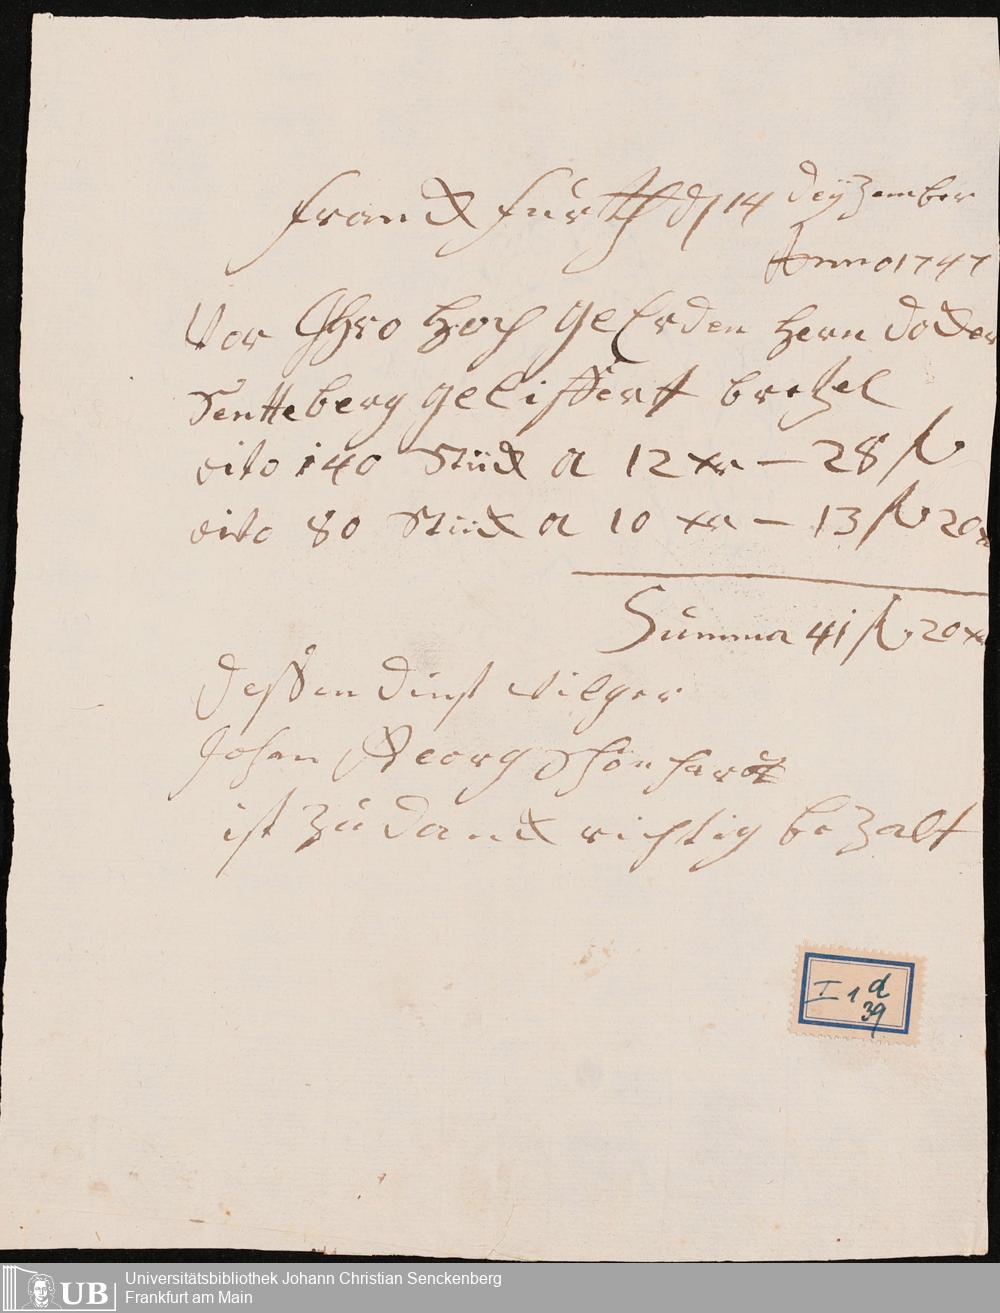 franck furth d 14 deyzember
Anno 1747
Vor Ihro hoch geErden hern docter
Sentteberg geliffert bretzel
dito 140 Stück a 12 xr — 28 fl
dito 80 Stück a 10 xr — 13 fl 20 xr
Summa 41 fl 20 xr
dessen dinst wilger
Johan Georg Schönhardt
ist zu danck richtig bezalt
I 1 d
39
UB
Universitätsbibliothek Johann Christian Senckenberg
Frankfurt am Main